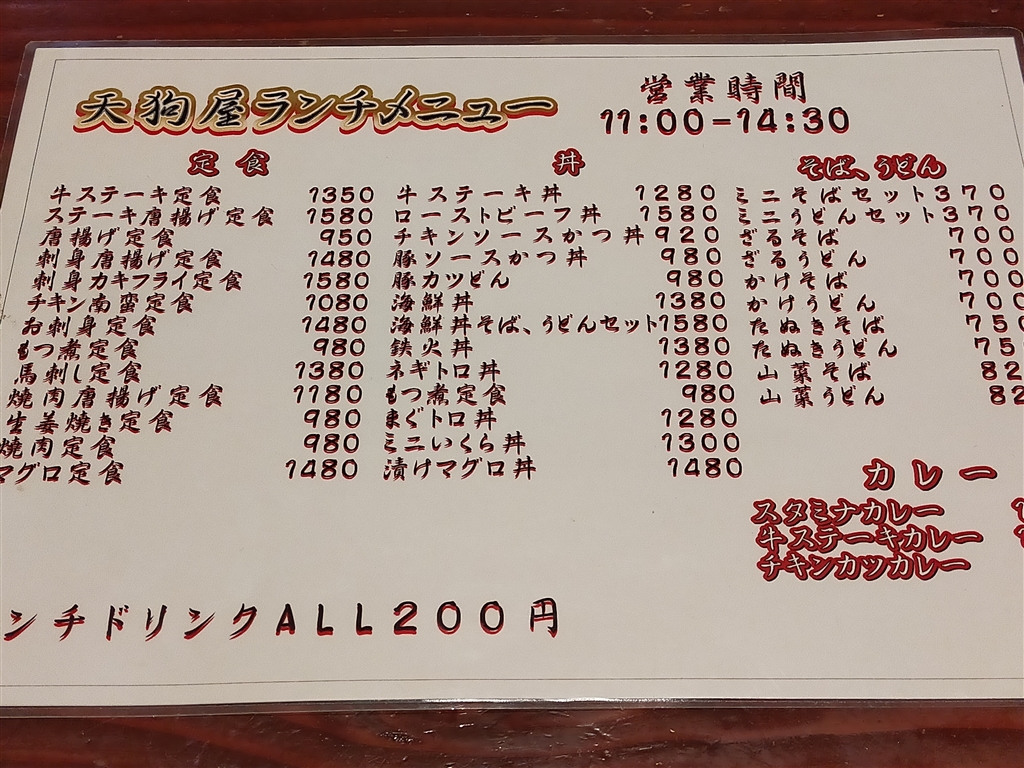 天狗屋ランチメニュー
営業時間
11:00-14:30
定食
牛ステーキ定食 1350
ステーキ唐揚げ定食 1580
唐揚げ定食 950
刺身唐揚げ定食 1480
刺身カキフライ定食 1580
チキン南蛮定食 1080
お刺身定食 1480
もつ煮定食 980
馬刺し定食 1380
焼肉唐揚げ定食 1180
生姜焼き定食 980
焼肉定食 980
マグロ定食 1480
丼
牛ステーキ丼 1280
ローストビーフ丼 1580
チキンソースかつ丼 920
豚ソースかつ丼 980
豚カツどん 980
海鮮丼 1380
海鮮丼そば、うどんセット 1580
鉄火丼 1380
ネギトロ丼 1280
もつ煮定食 980
まぐトロ丼 1280
ミニいくら丼 1300
漬けマグロ丼 1480
そば、うどん
ミニそばセット 370
ミニうどんセット 370
ざるそば 700
ざるうどん 700
かけそば 700
かけうどん 700
たぬきそば 750
たぬきうどん 75
山菜そば 82
山菜うどん 82
カレー
スタミナカレー
牛ステーキカレー
チキンカツカレー
ンチドリンクALL200円